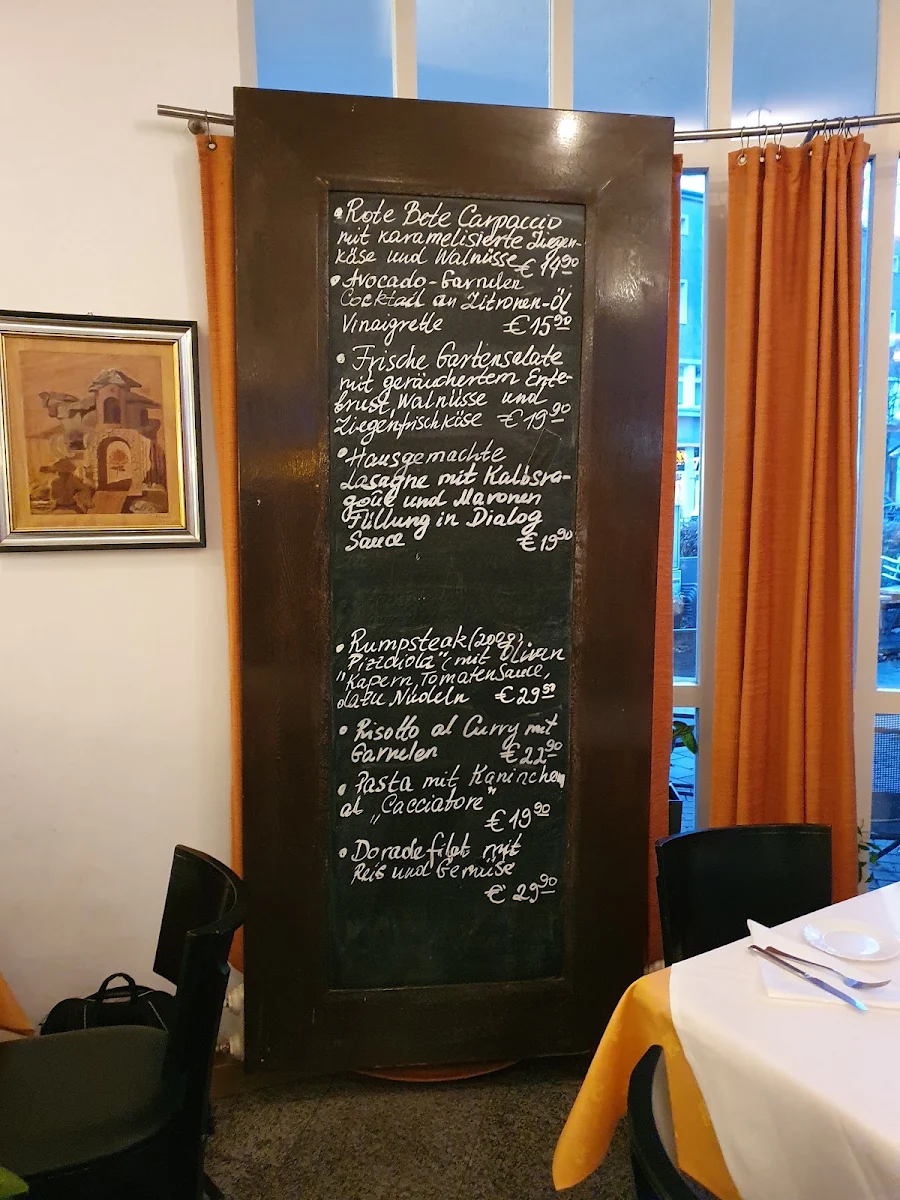 • Rote Bete Carpaccio
mit karamelisierte Ziegen-
käse und Walnüsse € 14⁹⁰
• Avocado-Garnelen
Cocktail an Zitronen-Öl
Vinaigrette € 15⁹⁰
• Frische Gartensalate
mit geräuchertem Ente-
brust, Walnüsse und
Ziegenfrischkäse € 19⁹⁰
• Hausgemachte
Lasagne mit Kalbsra-
goût und Maronen
Füllung in Dialog
Sauce € 19⁹⁰
• Rumpsteak (200g)
"Pizzaiola" (mit Oliven
Kapern, Tomatensauce,
dazu Nudeln € 29⁵⁰
• Risotto al Curry mit
Garnelen € 22⁹⁰
• Pasta mit Kaninchen
al „Cacciatore"
€ 19⁹⁰
• Doradefilet mit
Reis und Gemüse
€ 29⁹⁰